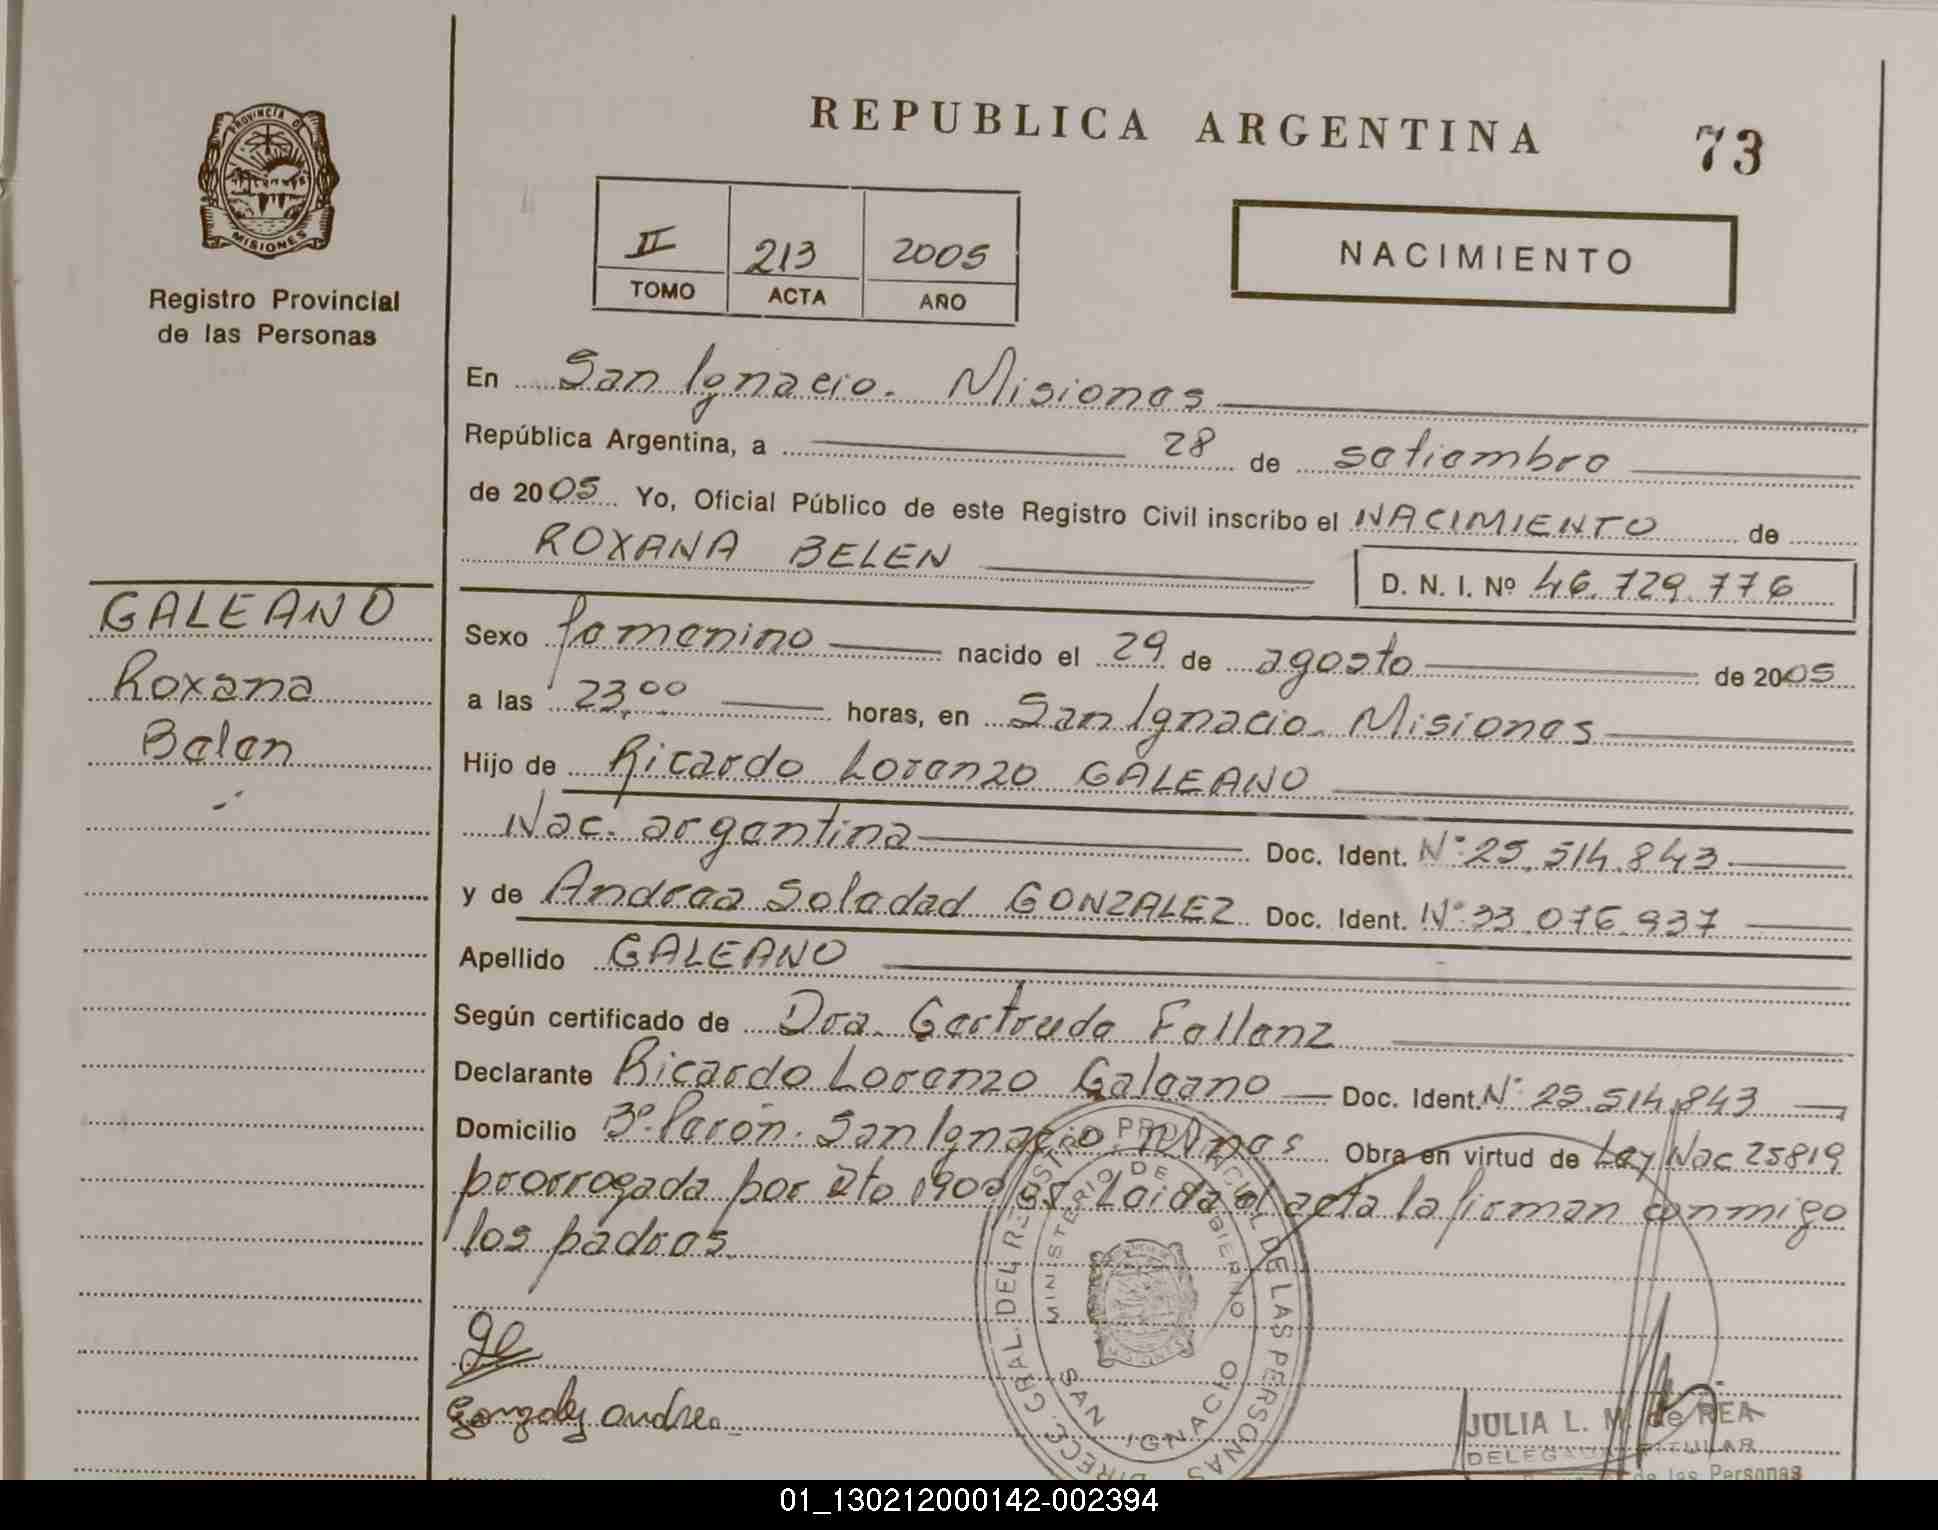 PROVINCIA DE
MISIONES
Registro Provincial
de las Personas
REPUBLICA ARGENTINA 73
II 213 2005
TOMO ACTA AÑO
NACIMIENTO
En San Ignacio. Misiones
República Argentina, a 28 de setiembre
de 2005 Yo, Oficial Público de este Registro Civil inscribo el NACIMIENTO de
ROXANA BELEN D. N. I. Nº 46.729.776
GALEANO
Roxana
Belen
Sexo femenino nacido el 29 de agosto de 2005
a las 23,00 horas, en San Ignacio. Misiones
Hijo de Ricardo Lorenzo GALEANO
Nac. argentina Doc. Ident. Nº 25.514.843
y de Andrea Soledad GONZALEZ Doc. Ident. Nº 33.076.937
Apellido GALEANO
Según certificado de Dra. Gertrude Fallenz
Declarante Ricardo Lorenzo Galeano Doc. Ident. Nº 25.514.843
Domicilio Bº Perón. San Ignacio Mnes Obra en virtud de Ley Nac 25819
prorrogada por dto 1900/05 Leida el acta la firman conmigo
los padres.
Gonzalez andrea
DIREC. GRAL. DEL REGISTRO PROVINCIAL DE LAS PERSONAS
MINISTERIO DE GOBIERNO
SAN IGNACIO
JULIA L. M. de REA
DELEGADA TITULAR
de las Personas
01_130212000142-002394